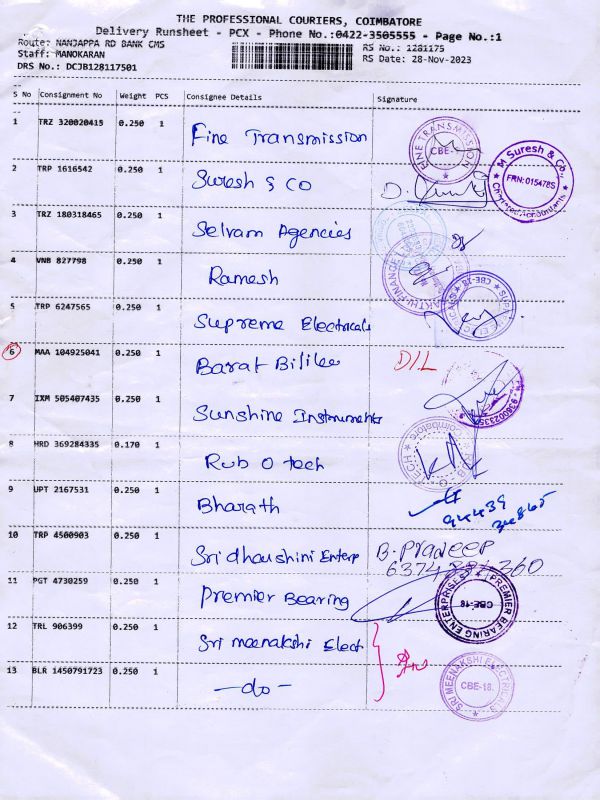 THE PROFESSIONAL COURIERS, COIMBATORE
Delivery Runsheet - PCX - Phone No.:0422-3505555 - Page No.:1
Route: NANJAPPA RD BANK CMS
RS No.: 1281175
Staff: MANOKARAN
RS Date: 28-Nov-2023
DRS No.: DCJB128117501
S No Consignment No Weight PCS Consignee Details Signature
1 TRZ 320020415 0.250 1 Fine Transmission
FINE TRANSMISSION CBE-
2 TRP 1616542 0.250 1 Suresh & Co
M Suresh & Co., FRN: 015478S Chartered Accountants
3 TRZ 180318465 0.250 1 Selvam Agencies
4 VNB 827798 0.250 1 Ramesh
5 TRP 6247565 0.250 1 Supreme Electricals
CBE-18
6 MAA 104925041 0.250 1 Barat Bililee D/L
7 IXM 505407435 0.250 1 Sunshine Instruments
8 HRD 369284335 0.170 1 Rub O tech
RUB-O-TECH Coimbatore
9 UPT 2167531 0.250 1 Bharath
94439
10 TRP 4500903 0.250 1 Sri dhaushini Enterp B. Pradeep
11 PGT 4730259 0.250 1 Premier Bearing
PREMIER BEARING ENTERPRISES CBE-18
12 TRL 906399 0.250 1 Sri meenakshi Elect
13 BLR 1450791723 0.250 1 -do-
SRI MEENAKSHI ELECTRICALS CBE-18.